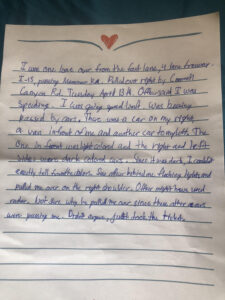 I was one lane over from the fast lane, 4 lane freeway
I-15, passing Mountain Rd. Pulled over right by Carroll
Canyon Rd. Tuesday April 13th. Officer said I was
Speeding. I was going speed limit. Was being
passed by cars. There was a car on my right,
a van infront of me and another car to my left. The
Van in front was light colored and the right and left
Sides were dark colored cars. Since it was dark, I couldn't
exactly tell for colors. Saw officer behind me, flashing lights, and
pulled me over on the right shoulder. Officer might have used
radar. Not sure why he pulled me over since there other cars
were passing me. Didn't argue, just took the ticket.